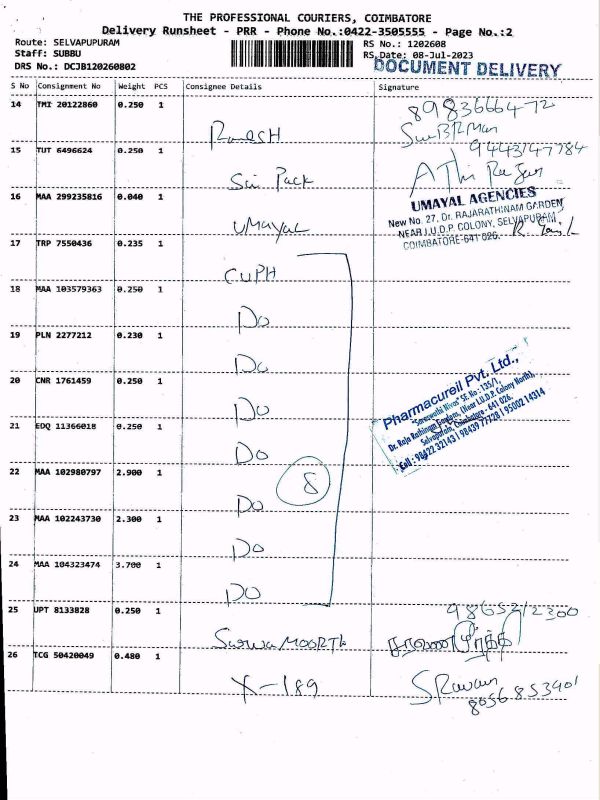 THE PROFESSIONAL COURIERS, COIMBATORE
Delivery Runsheet - PRR - Phone No.:0422-3505555 - Page No.:2
Route: SELVAPUPURAM
Staff: SUBBU
DRS No.: DCJB120260802
RS No.: 1202608
RS.Date: 08-Jul-2023
DOCUMENT DELIVERY
S No Consignment No Weight PCS Consignee Details Signature
14 TMI 20122860 0.250 1
8983666472
15 TUT 6496624 0.250 1
9443147784
Sai Pack
16 MAA 299235816 0.040 1
UMAYAL AGENCIES
New No. 27, Dr. RAJARATHINAM GARDEN
NEAR I.U.D.P COLONY, SELVAPURAM
COIMBATORE-641 026.
UMAYAL
17 TRP 7550436 0.235 1
CUPH
18 MAA 103579363 0.250 1
Do
19 PLN 2277212 0.230 1
Do
20 CNR 1761459 0.250 1
Do
Pharmacureil Pvt. Ltd.,
"Saraswathi Nivas" SF. No : 135/1,
Dr. Raja Rathinam Gardens, (Near I.U.D.P. Colony North),
Selvapuram, Coimbatore - 641 026.
Call : 98422 32143 | 98439 77728 | 95002 14314
21 EDQ 11366018 0.250 1
Do
22 MAA 102980797 2.900 1
8
Do
23 MAA 102243730 2.300 1
Do
24 MAA 104323474 3.700 1
Do
25 UPT 8133828 0.250 1
9865212300
26 TCG 50420049 0.480 1
X-189
8056853901